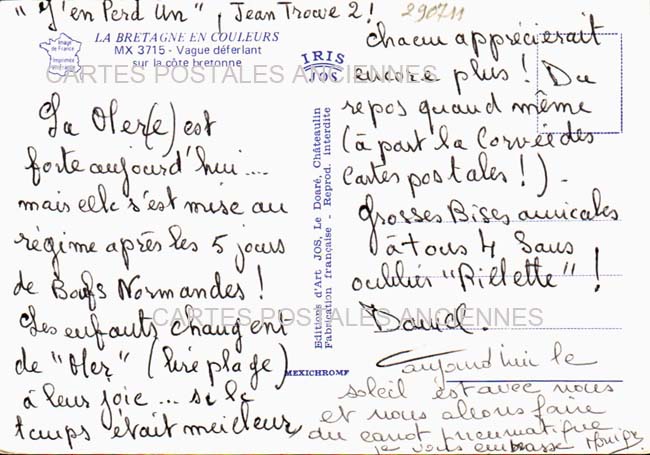 "J'en Perd Un", Jean Trouve 2!
290711
LA BRETAGNE EN COULEURS
MX 3715 - Vague déferlant
sur la côte bretonne
Image
de France
Imprimée
IRIS
JOS
CARTES POSTALES ANCIENNES
La Mer(e) est
forte aujourd'hui....
mais elle s'est mise au
régime après les 5 jours
de Boufs Normandes!
Les enfants changent
de "Mer" (lire plage)
à leur joie... si le
temps était meilleur,
Editions d'Art JOS, Le Doaré, Châteaulin
Fabrication française - Reprod. interdite
MEXICHROME
chacun apprécierait
encore plus! Du
repos quand même
(à part la Corvée des
Cartes postales!).
Grosses Bises amicales
à tous 4 Sans
oublier "Rillette"!
David.
CARTES POSTALES ANCIENNES
aujourd'hui le
soleil est avec nous
et nous allons faire
du canot pneumatique
je vous embrasse